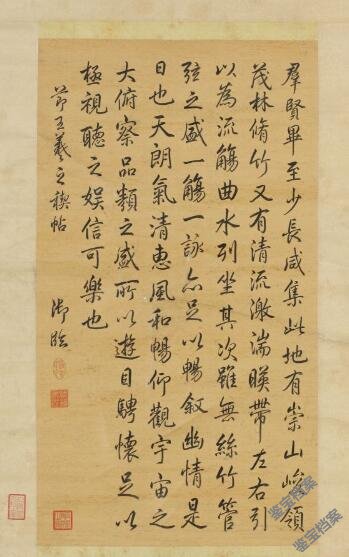 羣賢畢至少長咸集此地有崇山峻領
茂林脩竹又有清流激湍暎帶左右引
以為流觴曲水列坐其次雖無絲竹管
弦之盛一觴一詠亦足以暢敘幽情是
日也天朗氣清惠風和暢仰觀宇宙之
大俯察品類之盛所以遊目騁懷足以
極視聽之娛信可樂也
節王羲之禊帖
御臨
鉴宝档案
鉴宝档案